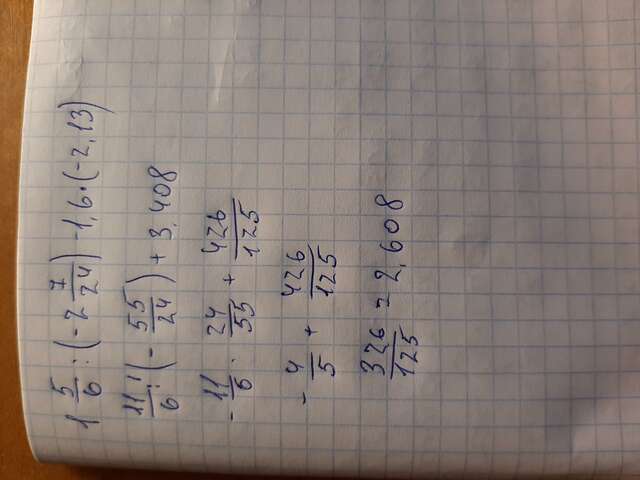 1 5/6 : (-2 7/24) - 1,6 · (-2,13)
11/6 : (- 55/24) + 3,408
- 11/6 · 24/55 + 426/125
- 4/5 + 426/125
326/125 = 2,608